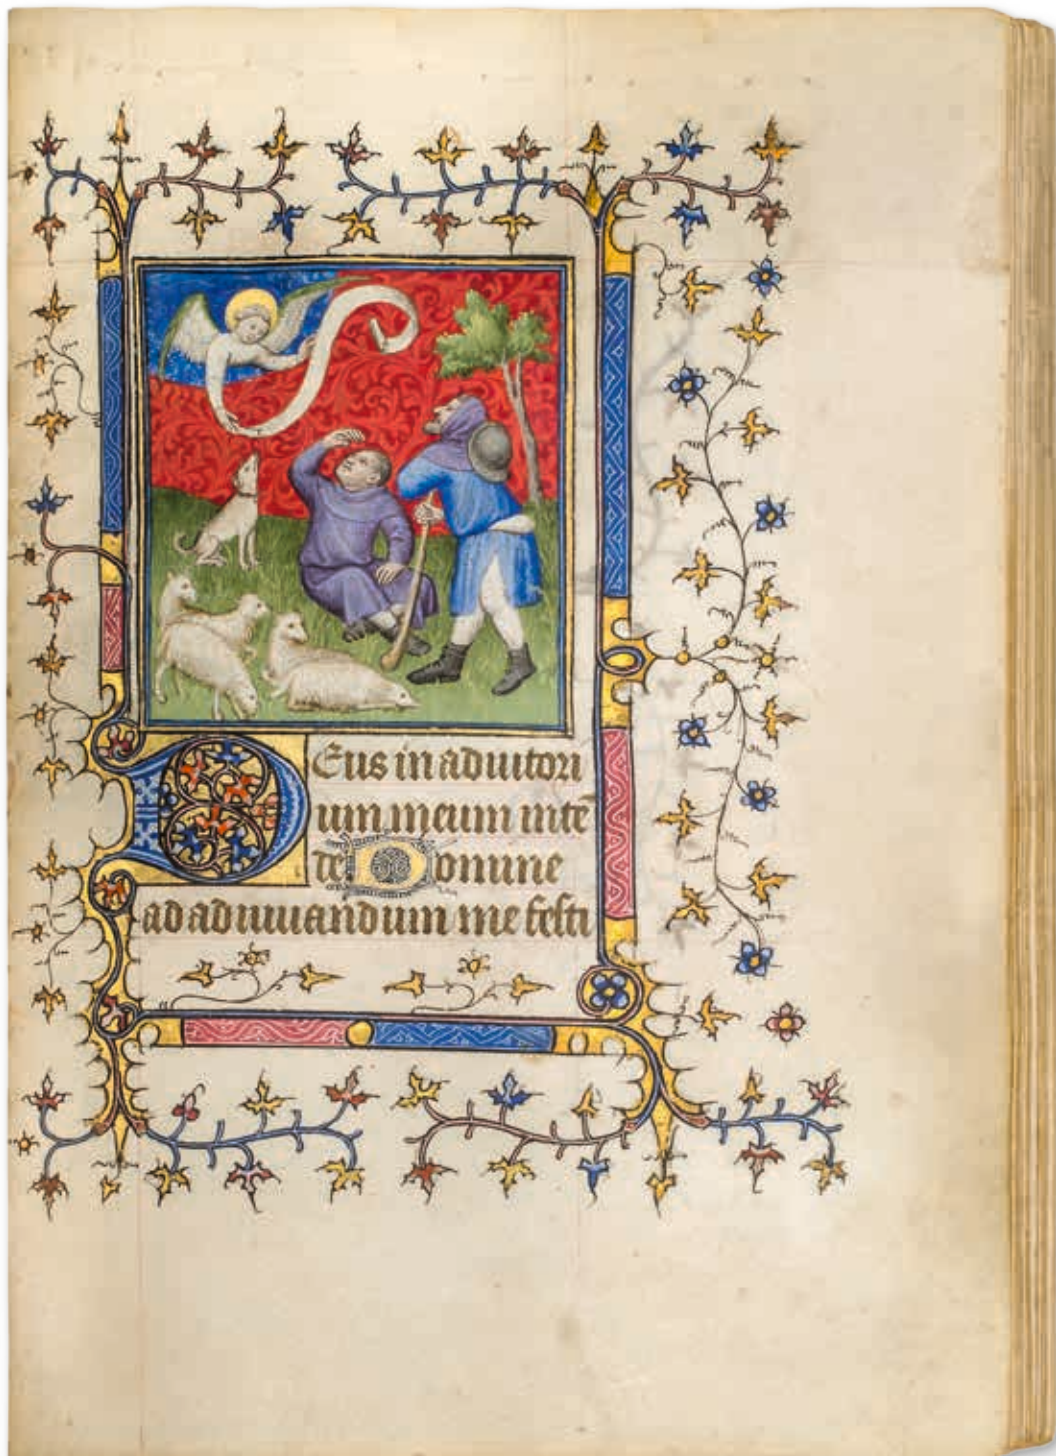 Deus in adiutori
um meum inte͞
de Domine
ad adiuuandum me festi